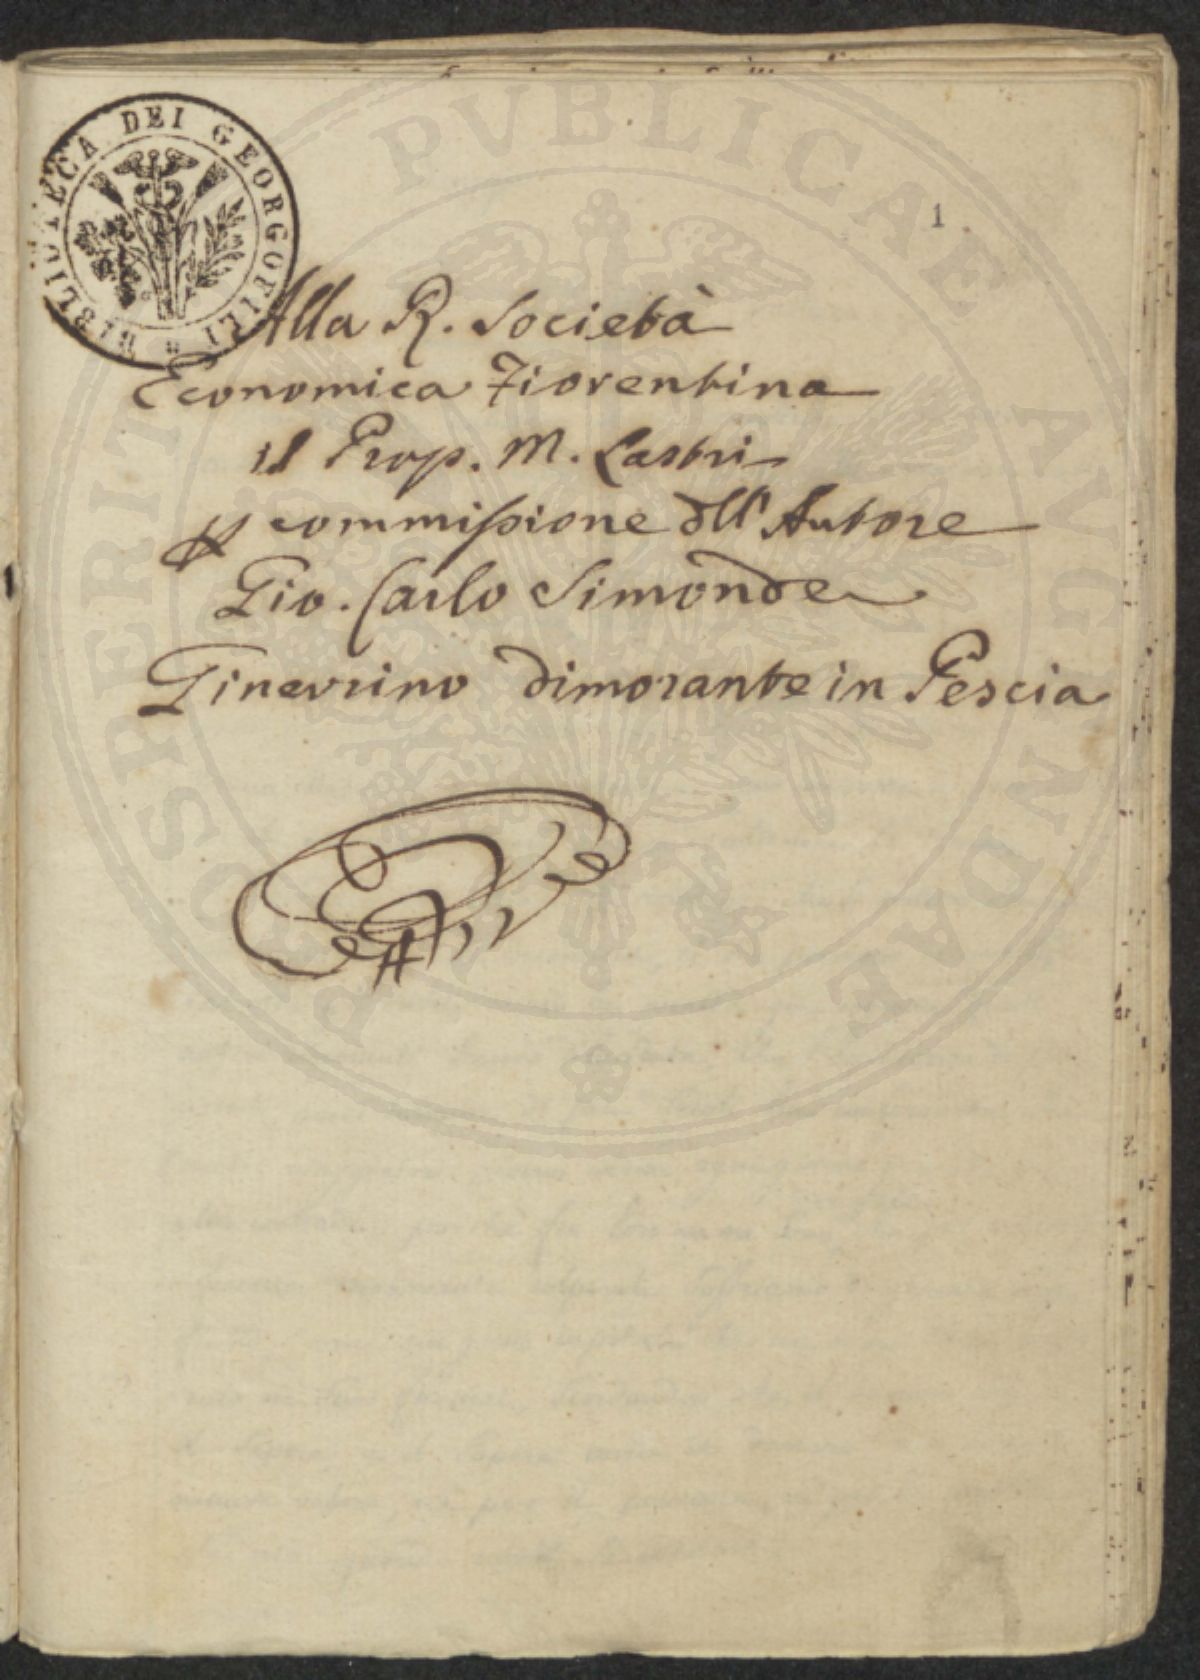 BIBLIOTECA DEI GEORGOFILI
PROSPERITATI PVBLICAE AVGENDAE
1
Alla R. Società
Economica Fiorentina
il Prop. M. Lastri
ꝑ commiſsione dell' Autore
Gio. Carlo Simonde
Ginevrino dimorante in Pescia